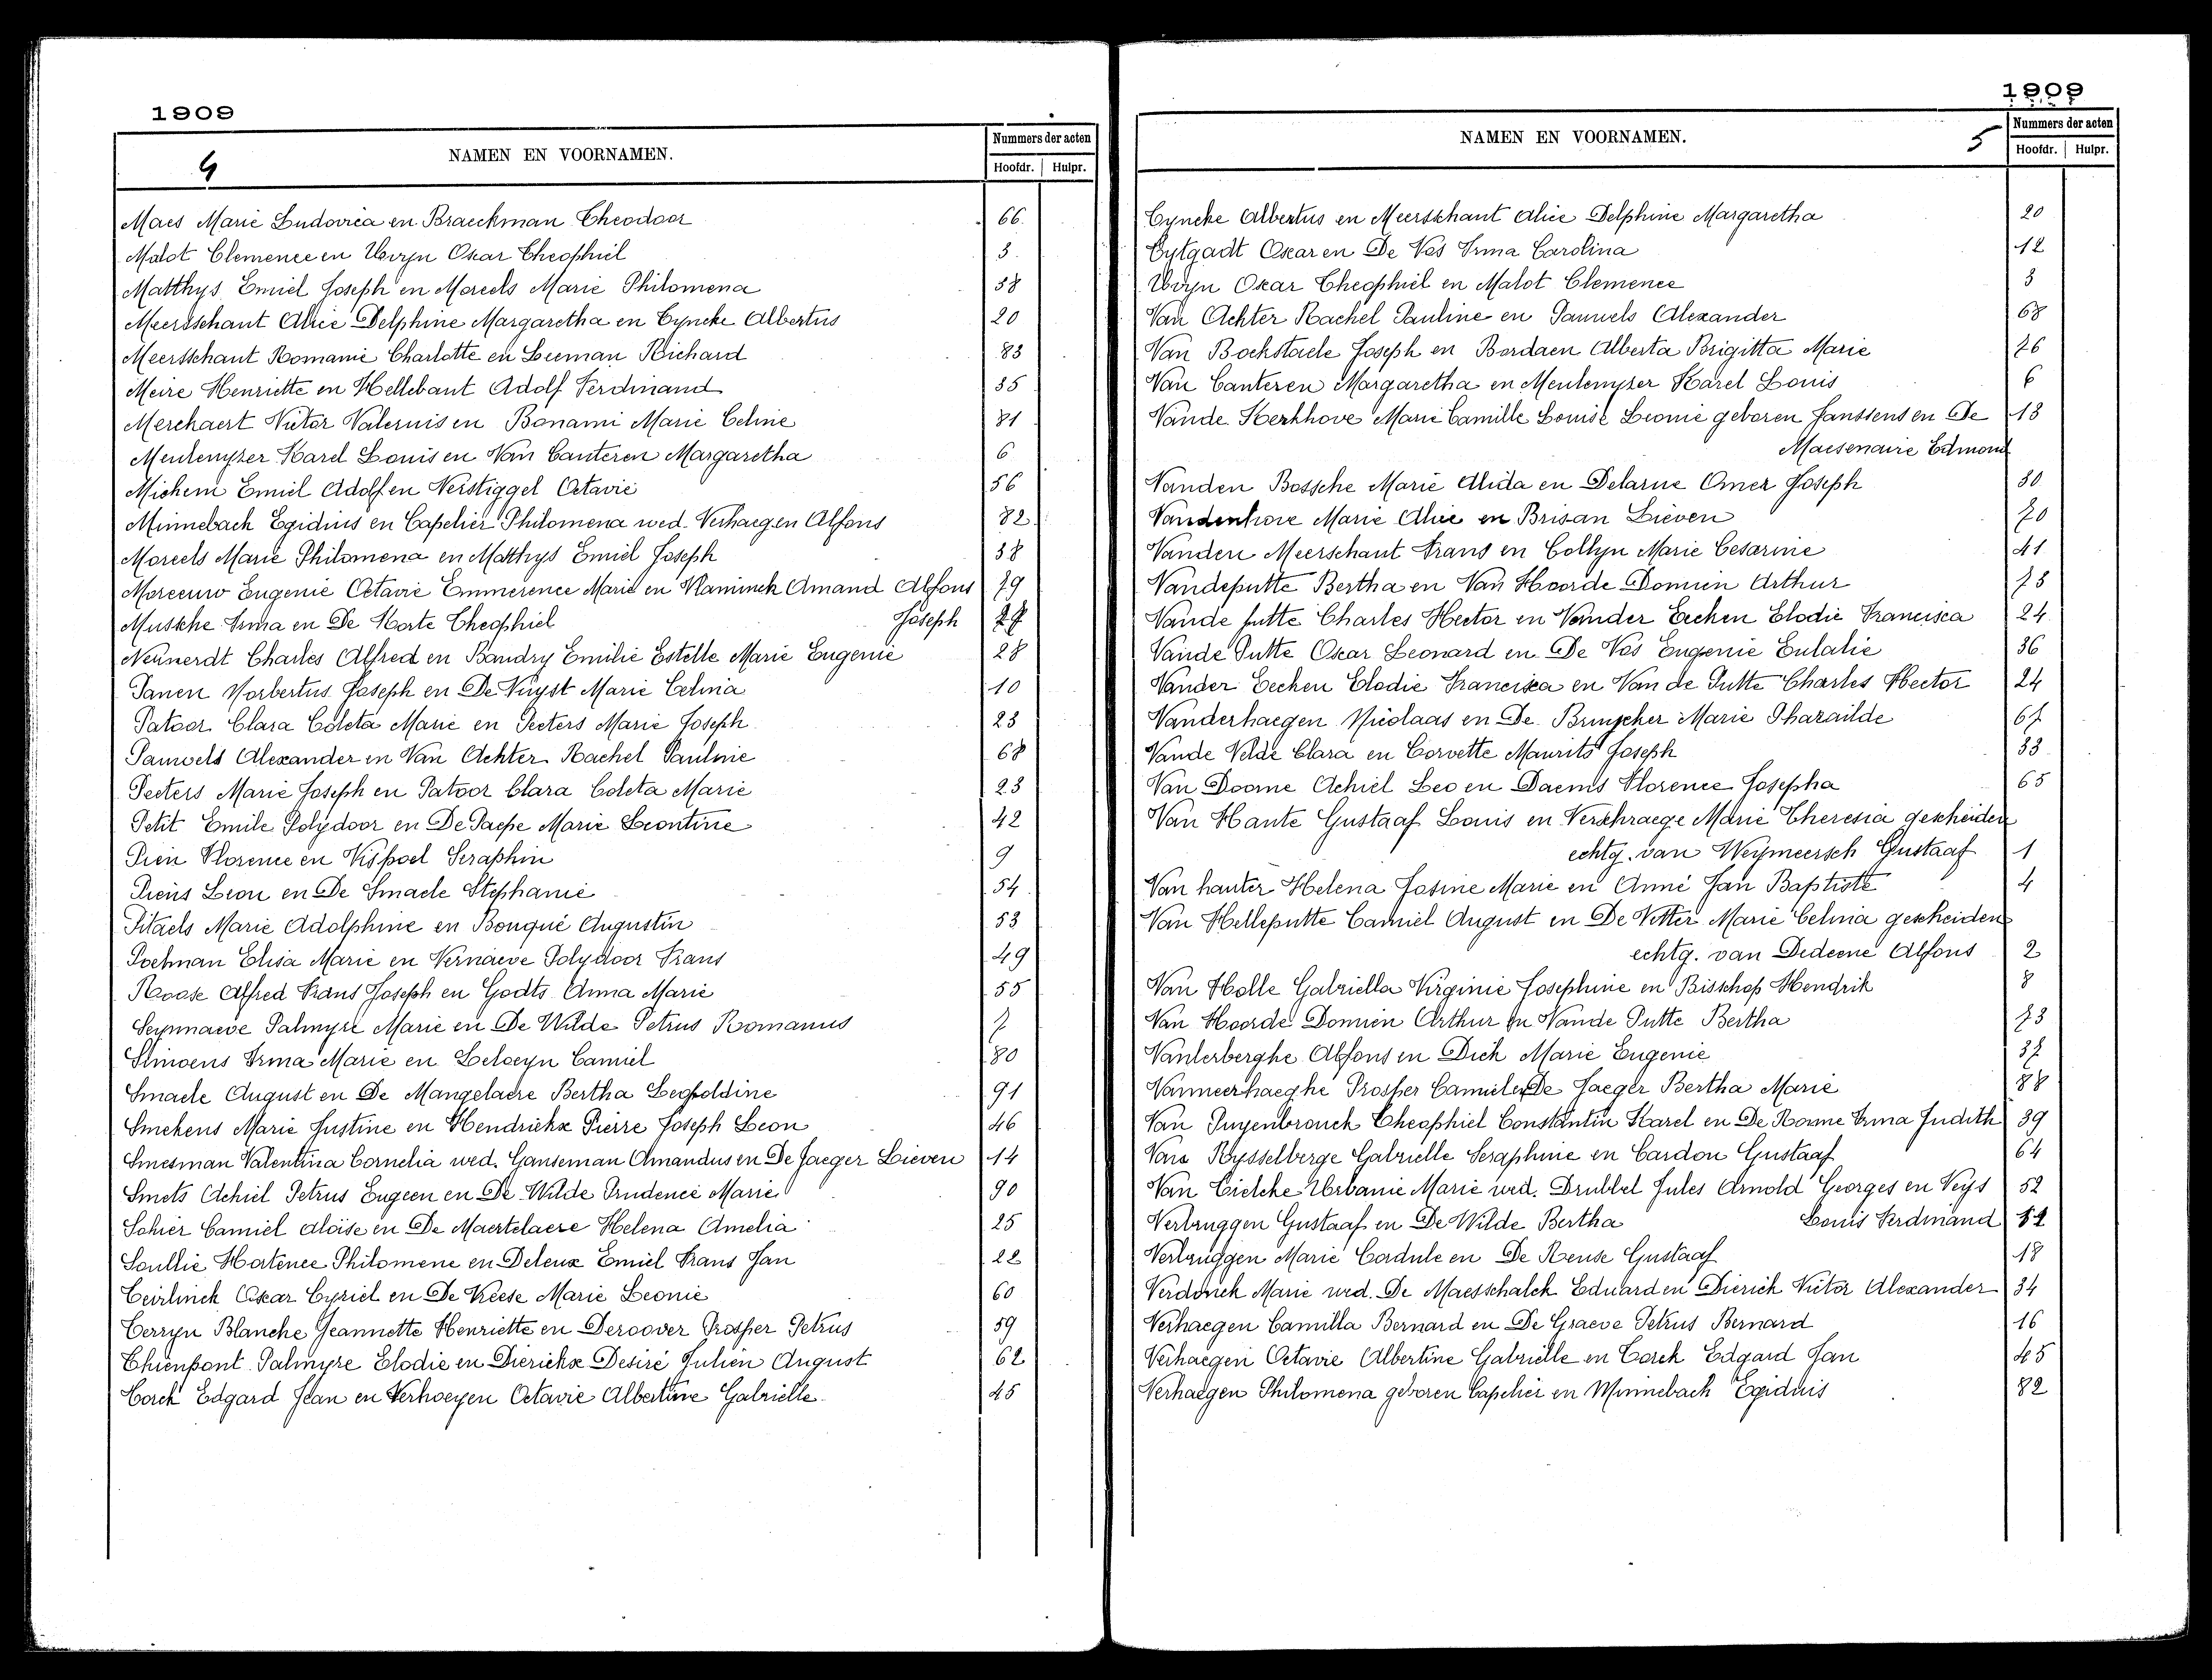 1909
4
NAMEN EN VOORNAMEN.
Nummers der acten
Hoofdr. Hulpr.
Maes Marie Ludovica en Braeckman Theodoor 66
Malot Clemence en Uvyn Oscar Theophiel 3
Matthys Emiel Joseph en Moreels Marie Philomena 38
Meersschaut Alice Delphine Margaretha en Tyncke Albertus 20
Meersschaut Romanie Charlotte en Leeman Richard 83
Meire Henriette en Hellebaut Adolf Ferdinand 35
Merchaert Victor Valerius en Bonami Marie Celine 81
Meulemyzer Karel Louis en Van Canteren Margaretha 6
Michem Emiel Adolf en Verstiggel Octavie 56
Minnebach Egidius en Capelier Philomena wed. Verhaegen Alfons 82
Moreels Marie Philomena en Matthys Emiel Joseph 38
Moreeuw Eugenie Octavie Emmerence Marie en Vlaminck Amand Alfons 79
Mussche Irma en De Korte Theophiel Joseph 27
Neunerdt Charles Alfred en Baudry Emilie Estelle Marie Eugenie 28
Panen Norbertus Joseph en De Nuyst Marie Celina 10
Patoor Clara Coleta Marie en Peeters Marie Joseph 23
Pauwels Alexander en Van Achter Rachel Pauline 68
Peeters Marie Joseph en Patoor Clara Coleta Marie 23
Petit Emile Polydoor en De Paepe Marie Leontine 42
Pien Florence en Vispoel Seraphin 9
Piens Leon en De Smaele Stephanie 54
Pitaels Marie Adolphine en Bouqué Augustin 53
Poelman Elisa Marie en Vernaeve Polydoor Frans 49
Roose Alfred Frans Joseph en Godts Anna Marie 55
Seynnaeve Palmyre Marie en De Wilde Petrus Romanus 7
Slinoens Irma Marie en Leloeyn Camiel 80
Smaele August en De Mangelaere Bertha Leopoldine 91
Smekens Marie Justine en Hendrickx Pierre Joseph Leon 46
Smesman Valentina Cornelia wed. Ganseman Amandus en De Jaeger Lieven 14
Smets Achiel Petrus Eugeen en De Wilde Prudence Marie 90
Sohier Camiel Aloïse en De Maertelaere Helena Amelia 25
Soullie Hortence Philomene en Deleux Emiel Frans Jan 22
Teirlinck Oscar Cyriel en De Keese Marie Leonie 60
Terryn Blanche Jeannette Henriette en Deroover Prosper Petrus 59
Thienpont Palmyre Elodie en Dierickx Desiré Julien August 62
Torck Edgard Jean en Verhoeyen Octavie Albertine Gabrielle 45
1909
NAMEN EN VOORNAMEN.
5
Nummers der acten
Hoofdr. Hulpr.
Tyncke Albertus en Meersschaut Alice Delphine Margaretha 20
Tytgadt Oscar en De Vos Irma Carolina 12
Uvyn Oscar Theophiel en Malot Clemence 3
Van Achter Rachel Pauline en Pauwels Alexander 68
Van Bockstaele Joseph en Bordaen Alberta Brigitta Marie 76
Van Canteren Margaretha en Meulemyzer Karel Louis 6
Vande Kerkhove Marie Camille Louise Leonie geboren Janssens en De 13
Maesenaire Edmond
Vanden Bossche Marie Alida en Delarue Omer Joseph 30
Vandenhove Marie Alice en Brisan Lieven 70
Vanden Meerschaut Frans en Collyn Marie Cesarine 41
Vandeputte Bertha en Van Hoorde Domien Arthur 73
Vande putte Charles Hector en Vander Eecken Elodie Francisca 24
Vande Putte Oscar Leonard en De Vos Eugenie Eulalie 36
Vander Eecken Elodie Francisca en Van de Putte Charles Hector 24
Vanderhaegen Nicolaas en De Bruycker Marie Pharailde 67
Vande Velde Clara en Corvette Maurits Joseph 33
Van Doorne Achiel Leo en Daems Florence Josepha 65
Van Haute Gustaaf Louis en Verschraege Marie Theresia gescheiden
echtg. van Weymeersch Gustaaf 1
Van hauter Helena Josine Marie en Anné Jan Baptiste 4
Van Helleputte Camiel August en De Vetter Marie Celina gescheiden
echtg. van Dedeene Alfons 2
Van Holle Gabriella Virginie Josephine en Bisschop Hendrik 8
Van Hoorde Domien Arthur en Vande Putte Bertha 73
Vanlerberghe Alfons en Dick Marie Eugenie 37
Vanmeerhaeghe Prosper Camiel en De Jaeger Bertha Marie 88
Van Puyenbrouck Theophiel Constantin Karel en De Ronne Irma Judith 39
Van Rysselberge Gabrielle Seraphine en Cardon Gustaaf 64
Van Tielcke Urbanie Marie wed. Drubbel Jules Arnold Georges en Veys 52
Verbruggen Gustaaf en De Wilde Bertha Louis Ferdinand
Verbruggen Marie Cordule en De Reuse Gustaaf 18
Verdonck Marie wed. De Maesschalck Eduard en Dierick Victor Alexander 34
Verhaegen Camilla Bernard en De Graeve Petrus Bernard 16
Verhaegen Octavie Albertine Gabrielle en Torck Edgard Jan 45
Verhaegen Philomena geboren Capelier en Minnebach Egidius 82